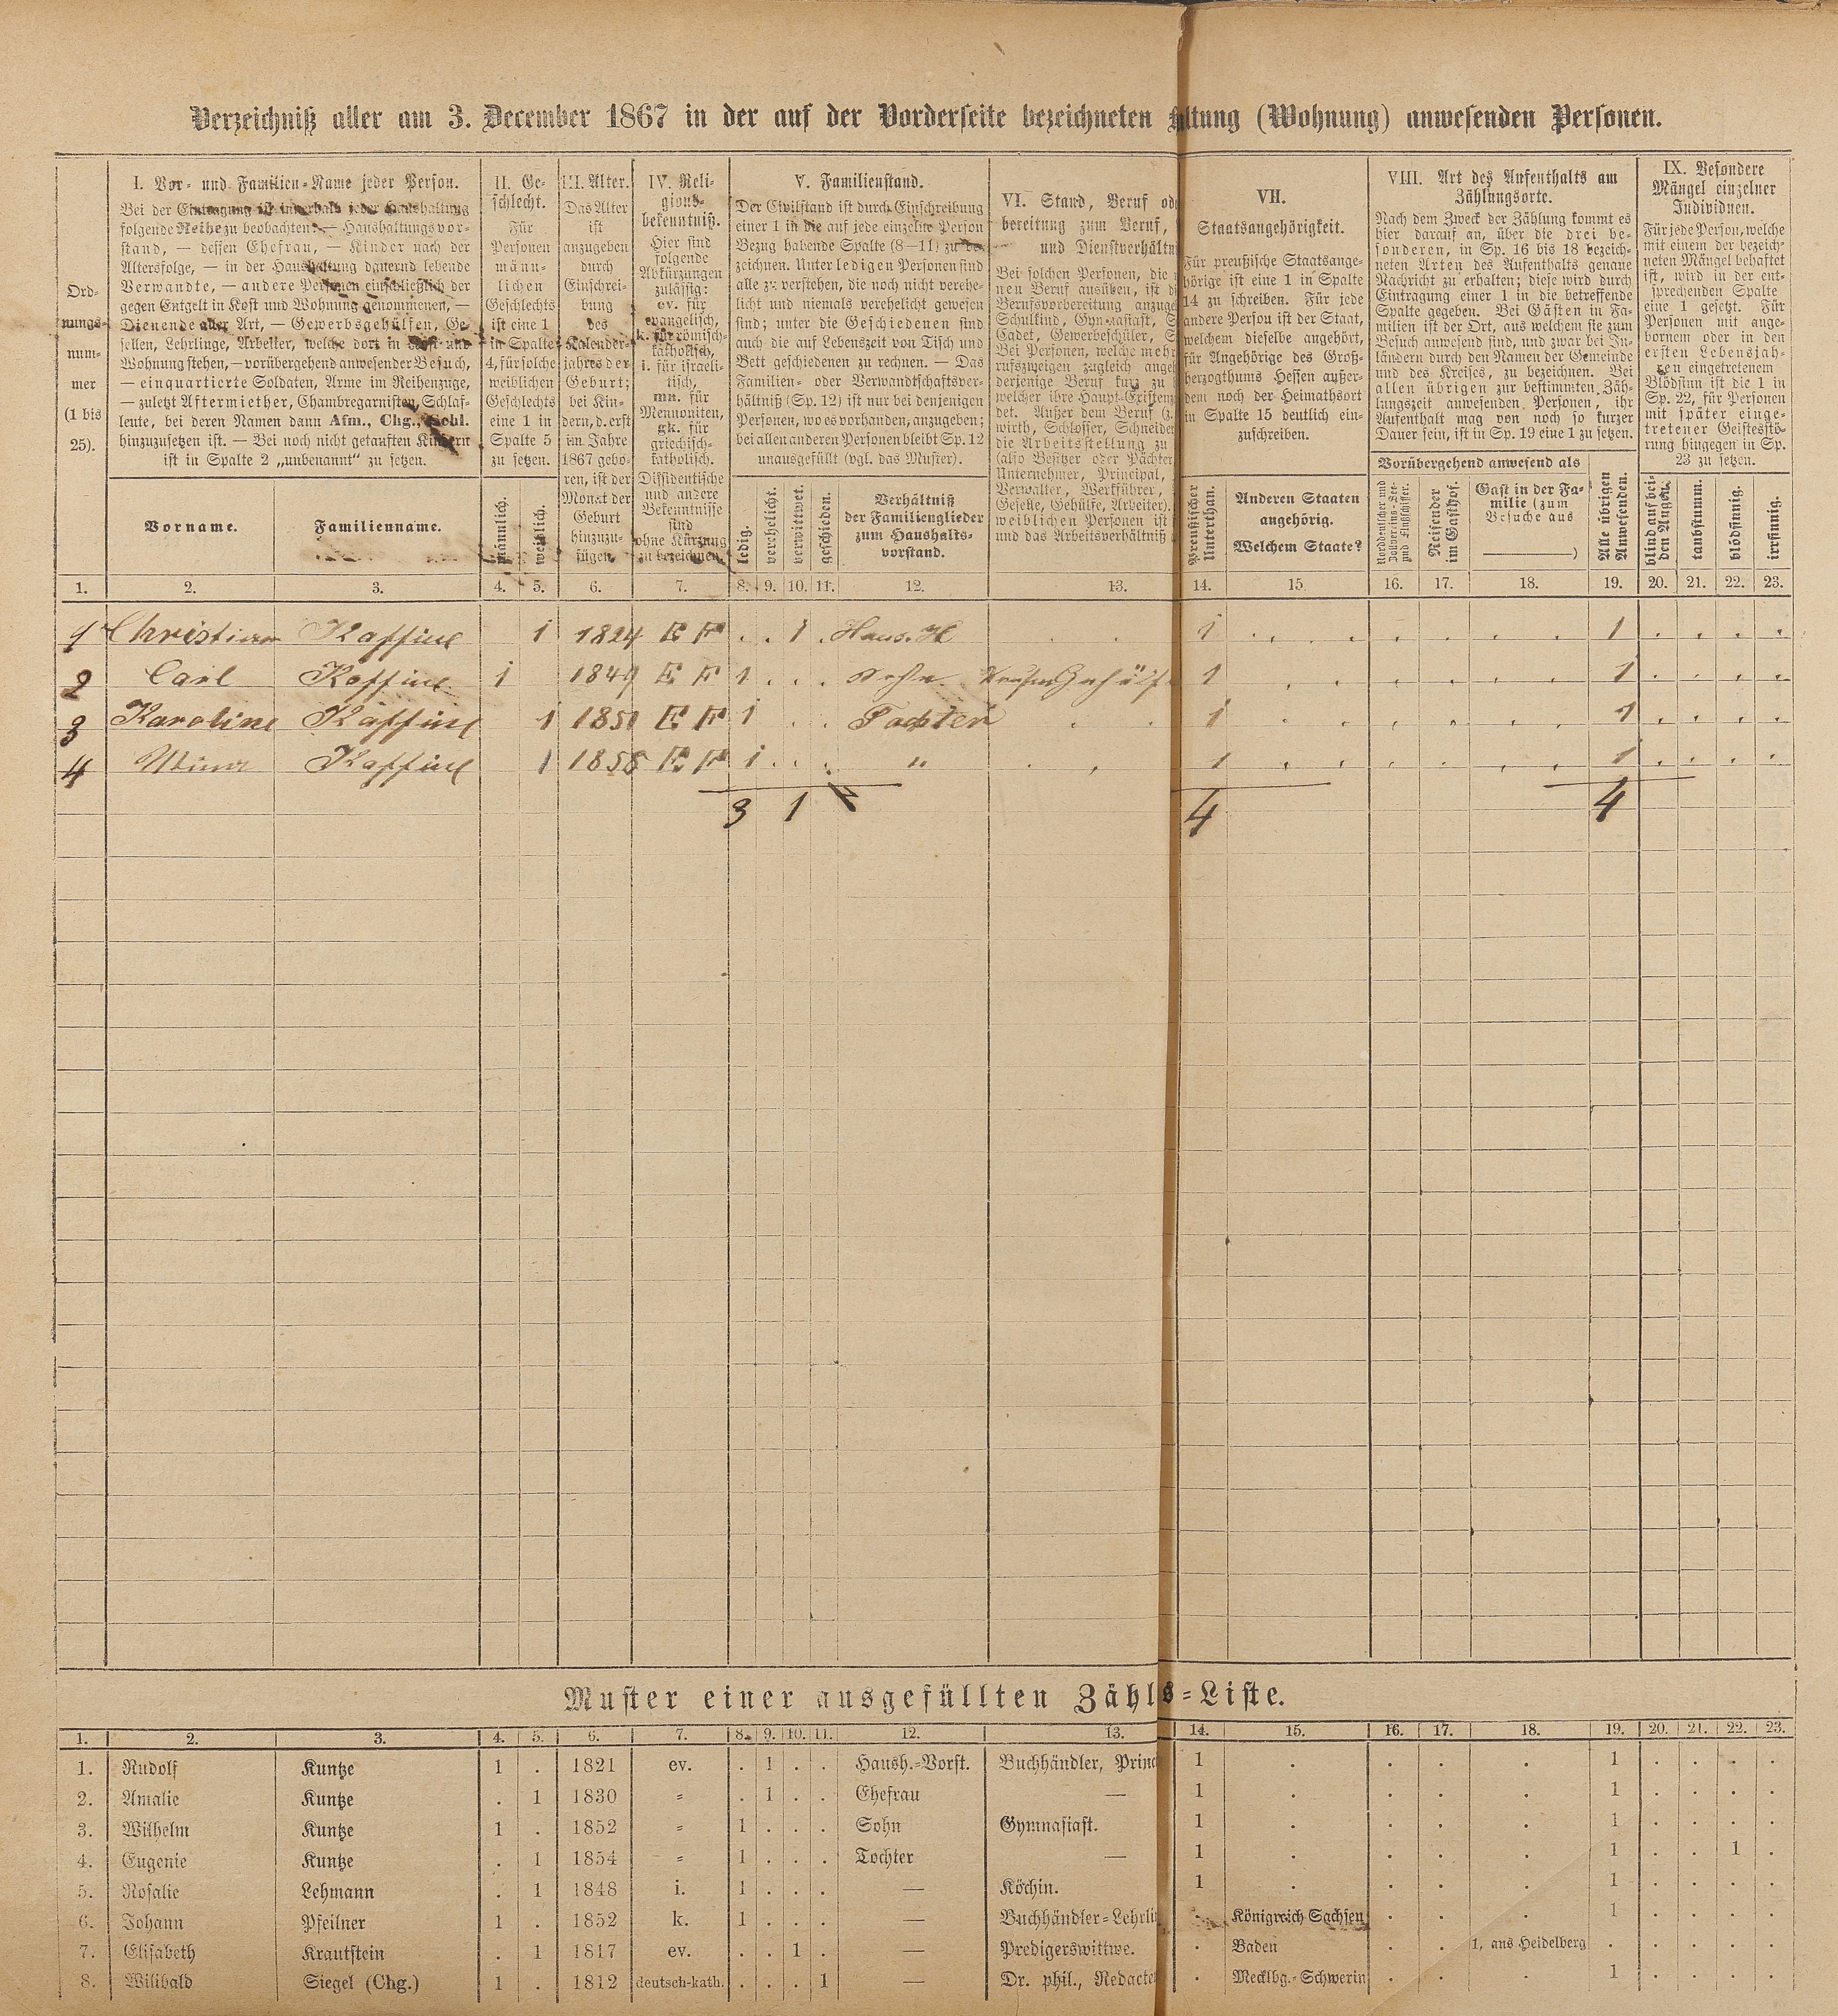 Verzeichniß aller am 3. December 1867 in der auf der Vorderseite bezeichneten ltung (Wohnung) anwesenden Personen.
Ord-
nungs-
num-
mer
(1 bis
25).
I. Vor- und Familien-Name jeder Person.
Bei der Eintragung ist innerhalb jeder Haushaltung
folgende Reihe zu beobachten: — Haushaltungsvor-
stand, — dessen Ehefrau, — Kinder nach der
Altersfolge, — in der Haushaltung dauernd lebende
Verwandte, — andere Personen einschließlich der
gegen Entgelt in Kost und Wohnung genommenen, —
Dienende aller Art, — Gewerbsgehülfen, Ge-
sellen, Lehrlinge, Arbeiter, welche dort in Kost und
Wohnung stehen, — vorübergehend anwesender Besuch,
— einquartierte Soldaten, Arme im Reihenzuge,
— zuletzt Aftermiether, Chambregarnisten, Schlaf-
leute, bei deren Namen dann Afm., Chg., Schl.
hinzuzusetzen ist. — Bei noch nicht getauften Kindern
ist in Spalte 2 „unbenannt“ zu setzen.
Vorname.
Familienname.
II. Ge-
schlecht.
Für
Personen
männ-
lichen
Geschlechts
ist eine 1
in Spalte
4, für solche
weiblichen
Geschlechts
eine 1 in
Spalte 5
zu setzen.
männlich.
weiblich.
III. Alter.
Das Alter
ist
anzugeben
durch
Einschrei-
bung
des
Kalender-
jahres der
Geburt;
bei Kin-
dern, d. erst
im Jahre
1867 gebo-
ren, ist der
Monat der
Geburt
hinzuzu-
fügen.
IV. Reli-
gions-
bekenntniß.
Hier sind
folgende
Abkürzungen
zulässig:
ev. für
evangelisch,
k. für römisch-
katholisch,
i. für israeli-
tisch,
mn. für
Mennoniten,
gk. für
griechisch-
katholisch.
Dissidentische
und andere
Bekenntnisse
sind
ohne Kürzung
zu bezeichnen.
V. Familienstand.
Der Civilstand ist durch Einschreibung
einer 1 in die auf jede einzelne Person
Bezug habende Spalte (8—11) zu be-
zeichnen. Unter ledigen Personen sind
alle zu verstehen, die noch nicht verehe-
licht und niemals verehelicht gewesen
sind; unter die Geschiedenen sind
auch die auf Lebenszeit von Tisch und
Bett geschiedenen zu rechnen. — Das
Familien- oder Verwandtschaftsver-
hältniß (Sp. 12) ist nur bei denjenigen
Personen, wo es vorhanden, anzugeben;
bei allen anderen Personen bleibt Sp. 12
unausgefüllt (vgl. das Muster).
ledig.
verehelicht.
verwittwet.
geschieden.
Verhältniß
der Familienglieder
zum Haushalts-
vorstand.
VI. Stand, Beruf od
bereitung zum Beruf,
und Dienstverhältn
Bei solchen Personen, die
nen Beruf ausüben, ist d
Berufsvorbereitung anzuge
Schulkind, Gymnasiast, S
Cadet, Gewerbeschüler, S
Bei Personen, welche mehr
rufszweigen zugleich angeh
derjenige Beruf kurz zu
welcher ihre Haupt-Existenz
det. Außer dem Beruf (z.
wirth, Schlosser, Schneider
die Arbeitsstellung zu
(also Besitzer oder Pächter
Unternehmer, Principal,
Verwalter, Werkführer,
Geselle, Gehülfe, Arbeiter).
weiblichen Personen ist
und das Arbeitsverhältniß
VII.
Staatsangehörigkeit.
Für preußische Staatsange-
hörige ist eine 1 in Spalte
14 zu schreiben. Für jede
andere Person ist der Staat,
welchem dieselbe angehört,
für Angehörige des Groß-
herzogthums Hessen außer-
dem noch der Heimathsort
in Spalte 15 deutlich ein-
zuschreiben.
Preußischer
Unterthan.
Anderen Staaten
angehörig.
Welchem Staate?
VIII. Art des Aufenthalts am
Zählungsorte.
Nach dem Zweck der Zählung kommt es
hier darauf an, über die drei be-
sonderen, in Sp. 16 bis 18 bezeich-
neten Arten des Aufenthalts genaue
Nachricht zu erhalten; diese wird durch
Eintragung einer 1 in die betreffende
Spalte gegeben. Bei Gästen in Fa-
milien ist der Ort, aus welchem sie zum
Besuch anwesend sind, und zwar bei In-
ländern durch den Namen der Gemeinde
und des Kreises, zu bezeichnen. Bei
allen übrigen zur bestimmten Zäh-
lungszeit anwesenden Personen, ihr
Aufenthalt mag von noch so kurzer
Dauer sein, ist in Sp. 19 eine 1 zu setzen.
Vorübergehend anwesend als
Norddeutscher und
Zollvereins-See-
und Flußschiffer.
Reisender
im Gasthof.
Gast in der Fa-
milie (zum
Besuche aus
)
Alle übrigen
Anwesenden.
IX. Besondere
Mängel einzelner
Individuen.
Für jede Person, welche
mit einem der bezeich-
neten Mängel behaftet
ist, wird in der ent-
sprechenden Spalte
eine 1 gesetzt. Für
Personen mit ange-
bornem oder in den
ersten Lebensjah-
ren eingetretenem
Blödsinn ist die 1 in
Sp. 22, für Personen
mit später einge-
tretener Geistesstö-
rung hingegen in Sp.
23 zu setzen.
blind auf bei-
den Augen.
taubstumm.
blödsinnig.
irrsinnig.
1. 2. 3. 4. 5. 6. 7. 8. 9. 10. 11. 12. 13. 14. 15. 16. 17. 18. 19. 20. 21. 22. 23.
1 Christian Kaffine 1 1824 E F . . 1 . Haus. H . . 1 . . . . . . . . 1 . . . .
2 Carl Kaffine 1 1849 E F 1 . . . Sohn 1 . . . . . . 1 . . . .
3 Karoline Kaffine 1 1851 E F 1 . . Tochter . . 1 . . . . . . . 1 . . . .
4 Kaffine 1 1858 E F 1 . . . " . . 1 . . . . . . . 1 . . . .
3 1 4 4
Muster einer ausgefüllten Zähls-Liste.
1. 2. 3. 4. 5. 6. 7. 8. 9. 10. 11. 12. 13. 14. 15. 16. 17. 18. 19. 20. 21. 22. 23.
1. Rudolf Kuntze 1 . 1821 ev. . 1 . . Haush.-Vorst. Buchhändler, Princ 1 . . . . 1 . . . .
2. Amalie Kuntze . 1 1830 " . 1 . . Ehefrau — 1 . . . . 1 . . . .
3. Wilhelm Kuntze 1 . 1852 " 1 . . . Sohn Gymnasiast. 1 . . . . 1 . . . .
4. Eugenie Kuntze . 1 1854 " 1 . . . Tochter — 1 . . . . 1 . . 1 .
5. Rosalie Lehmann . 1 1848 i. 1 . . . — Köchin. 1 . . . . 1 . . . .
6. Johann Pfeilner 1 . 1852 k. 1 . . . — Buchhändler-Lehrli . Königreich Sachsen . . . 1 . . . .
7. Elisabeth Krautstein . 1 1817 ev. . . 1 . — Predigerswittwe. . Baden . . 1, aus Heidelberg . . . . .
8. Wilibald Siegel (Chg.) 1 . 1812 deutsch-kath. . . . 1 — Dr. phil., Redacte . Mecklbg.-Schwerin . . . 1 . . . .